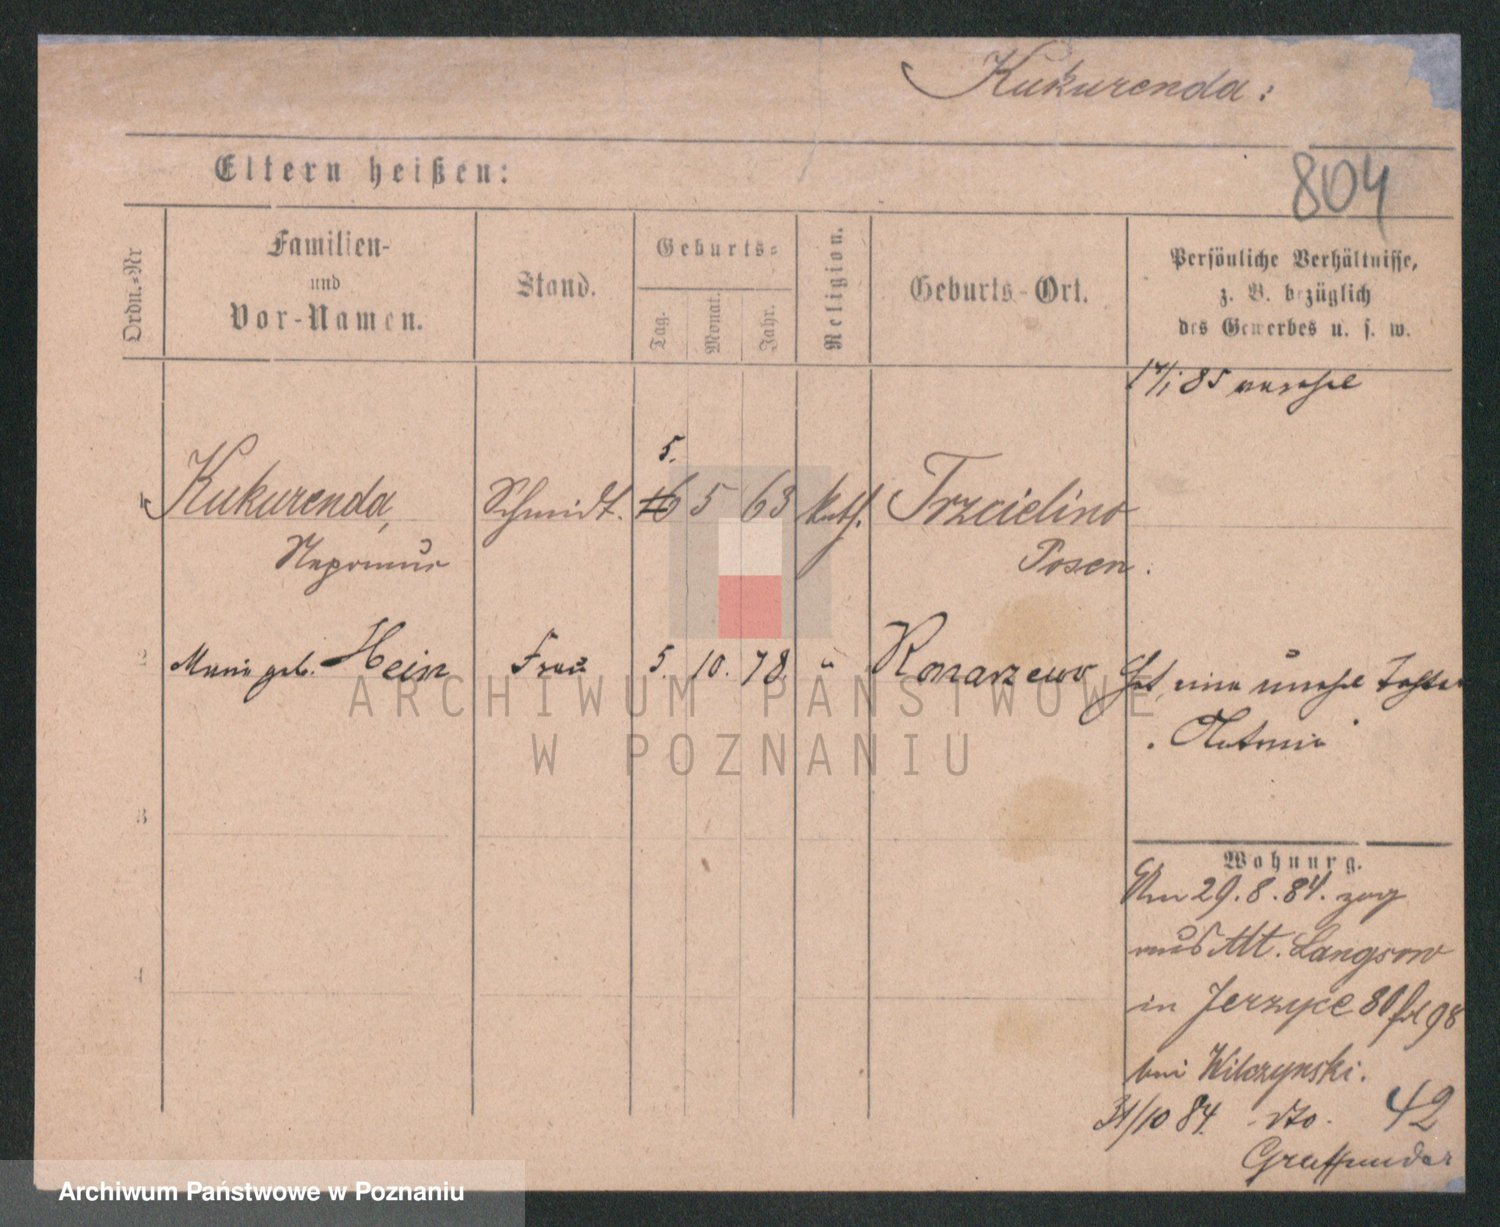 Kukurenda:
804
Eltern heißen:
Ordn.-Nr
Familien-
und
Vor-Namen.
Stand.
Geburts-
Tag.
Monat.
Jahr.
Religion.
Geburts-Ort.
Persönliche Verhältnisse,
z. B. bezüglich
des Gewerbes u. s. w.
17/1 85
5.
1 Kukurenda, Schmidt. 16 5 63 kath. Trzcielino
Posen.
2 Marie geb. Hein Frau 5. 10. 78. " Konarzewo Hat eine unehel Tochter
Antonie
3
4
Wohnung.
Am 29.8.84. zog
aus Alt.
in Jerzyce 80 fol 98
bei Wilczynski.
31/10 84. dto. 42
ARCHIWUM PAŃSTWOWE
W POZNANIU
Archiwum Państwowe w Poznaniu